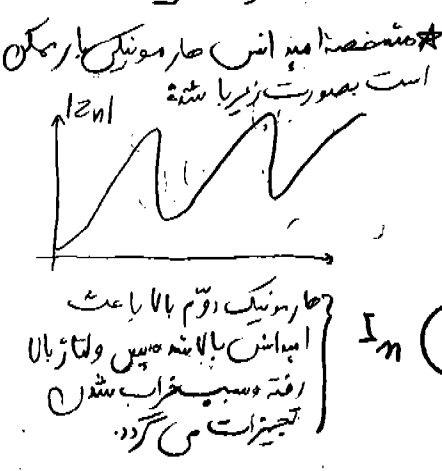 * مشخصه امپدانس هارمونیکی بار ممکن
است بصورت زیر باشد:
|Zn|
هارمونیک دوم بالا باعث
امپدانس بالا شده پس ولتاژ بالا
رفته و سبب خراب شدن
تجهیزات می گردد.
In